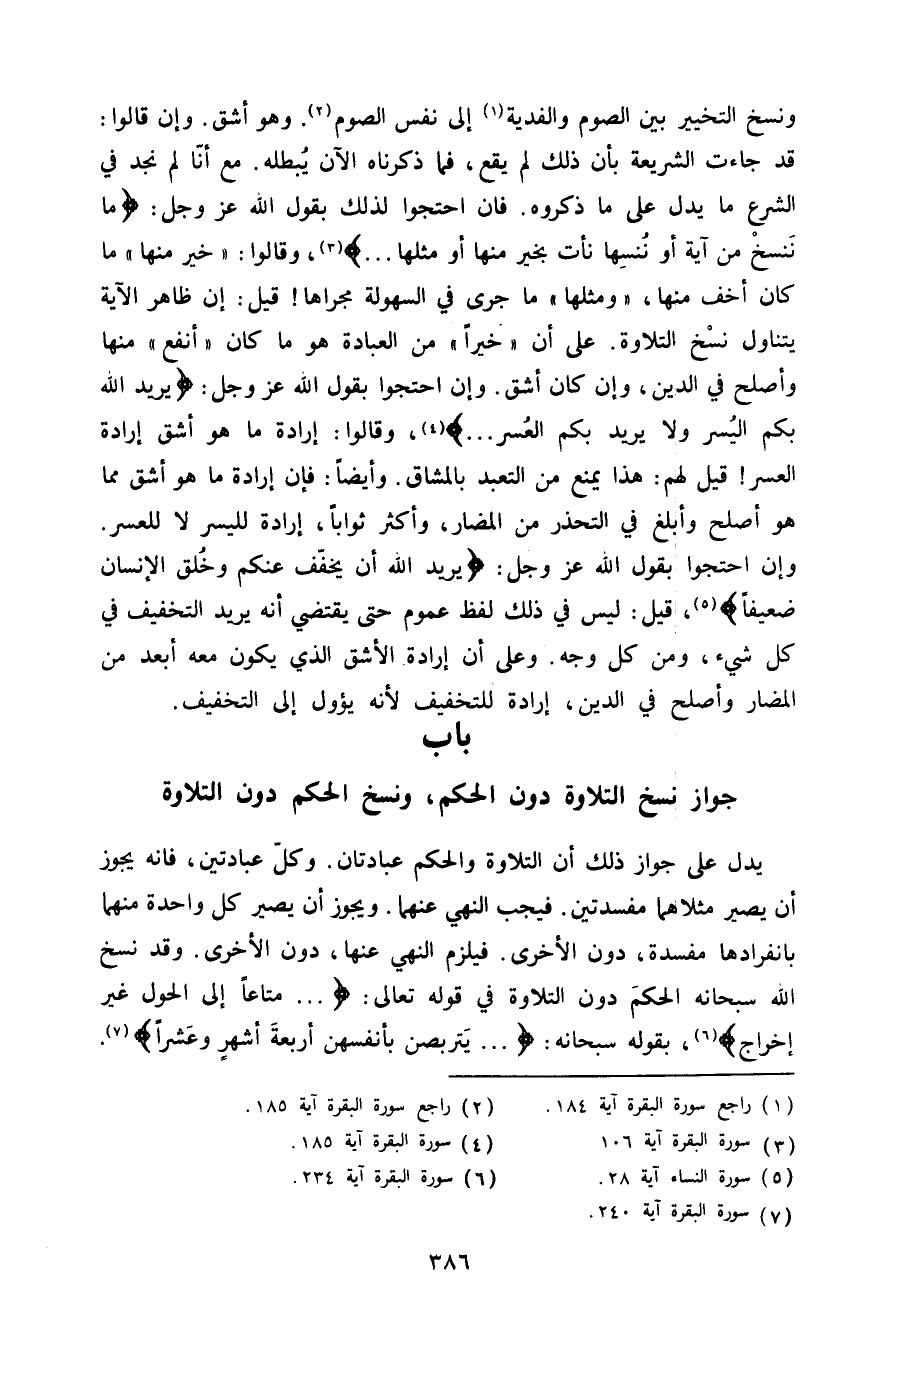 ونسخ التخيير بين الصوم والفدية(١) إلى نفس الصوم(٢). وهو أشق. وإن قالوا:
قد جاءت الشريعة بأن ذلك لم يقع، فما ذكرناه الآن يُبطله. مع أنّا لم نجد في
الشرع ما يدل على ما ذكروه. فان احتجوا لذلك بقول الله عز وجل: ﴿ما
نَنسخْ من آية أو نُنسِها نأت بخير منها أو مثلها...﴾(٣)، وقالوا: «خير منها» ما
كان أخف منها، «ومثلها» ما جرى في السهولة مجراها! قيل: إن ظاهر الآية
يتناول نسْخ التلاوة. على أن «خيراً» من العبادة هو ما كان «أنفع» منها
وأصلح في الدين، وإن كان أشق. وإن احتجوا بقول الله عز وجل: ﴿يريد الله
بكم اليُسر ولا يريد بكم العُسر...﴾(٤)، وقالوا: إرادة ما هو أشق إرادة
العسر! قيل لهم: هذا يمنع من التعبد بالمشاق. وأيضاً: فإن إرادة ما هو أشق مما
هو أصلح وأبلغ في التحذر من المضار، وأكثر ثواباً، إرادة لليسر لا للعسر.
وإن احتجوا بقول الله عز وجل: ﴿يريد الله أن يخفّف عنكم وخُلق الإنسان
ضعيفاً﴾(٥)، قيل: ليس في ذلك لفظ عموم حتى يقتضي أنه يريد التخفيف في
كل شيء، ومن كل وجه. وعلى أن إرادة الأشق الذي يكون معه أبعد من
المضار وأصلح في الدين، إرادة للتخفيف لأنه يؤول إلى التخفيف.
باب
جواز نسخ التلاوة دون الحكم، ونسخ الحكم دون التلاوة
يدل على جواز ذلك أن التلاوة والحكم عبادتان. وكلّ عبادتين، فانه يجوز
أن يصير مثلاهما مفسدتين. فيجب النهي عنهما. ويجوز أن يصير كل واحدة منهما
بانفرادها مفسدة، دون الأخرى. فيلزم النهي عنها، دون الأخرى. وقد نسخ
الله سبحانه الحكمَ دون التلاوة في قوله تعالى: ﴿... متاعاً إلى الحول غير
إخراج﴾(٦)، بقوله سبحانه: ﴿... يَتربصن بأنفسهن أربعةَ أشهرٍ وعَشراً﴾(٧).
(١) راجع سورة البقرة آية ١٨٤. (٢) راجع سورة البقرة آية ١٨٥.
(٣) سورة البقرة آية ١٠٦ (٤) سورة البقرة آية ١٨٥.
(٥) سورة النساء آية ٢٨. (٦) سورة البقرة آية ٢٣٤.
(٧) سورة البقرة آية ٢٤٠.
٣٨٦